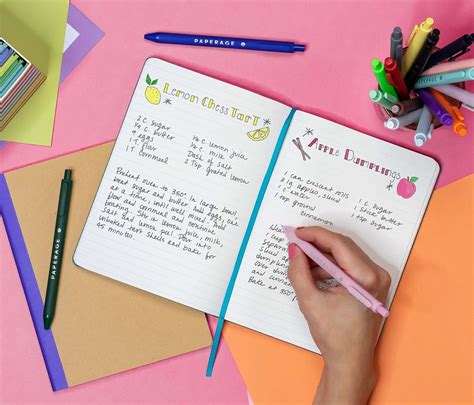 PAPERAGE
Lemon Chess Tart
2 c. sugar
½ c. butter
4 eggs
1 T flour
1 T cornmeal
¼ c. lemon juice
¼ c. milk
Dash of salt
2 T grated lemon
Preheat oven to 350° In large bowl,
beat sugar and butter. Add eggs, one
at a time, until well mixed. Add
flour and cornmeal and continue
beating. Stir in lemon juice, milk,
salt and lemon peel. Pour into
unbaked tart shells and bake for
45 minutes.
Apple Dumplings
1 can crescent rolls
apple, sliced
1 c. water
1 tsp ground
cinnamon
1 c. sugar
butter
sugar
sliced
and
Bake at 350°
PAPERAGE